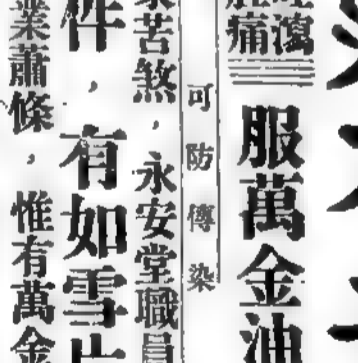 瀉
痛
服萬金油
可防傳染
苦煞，永安堂職員
件，有如雪
業蕭條，惟有萬金